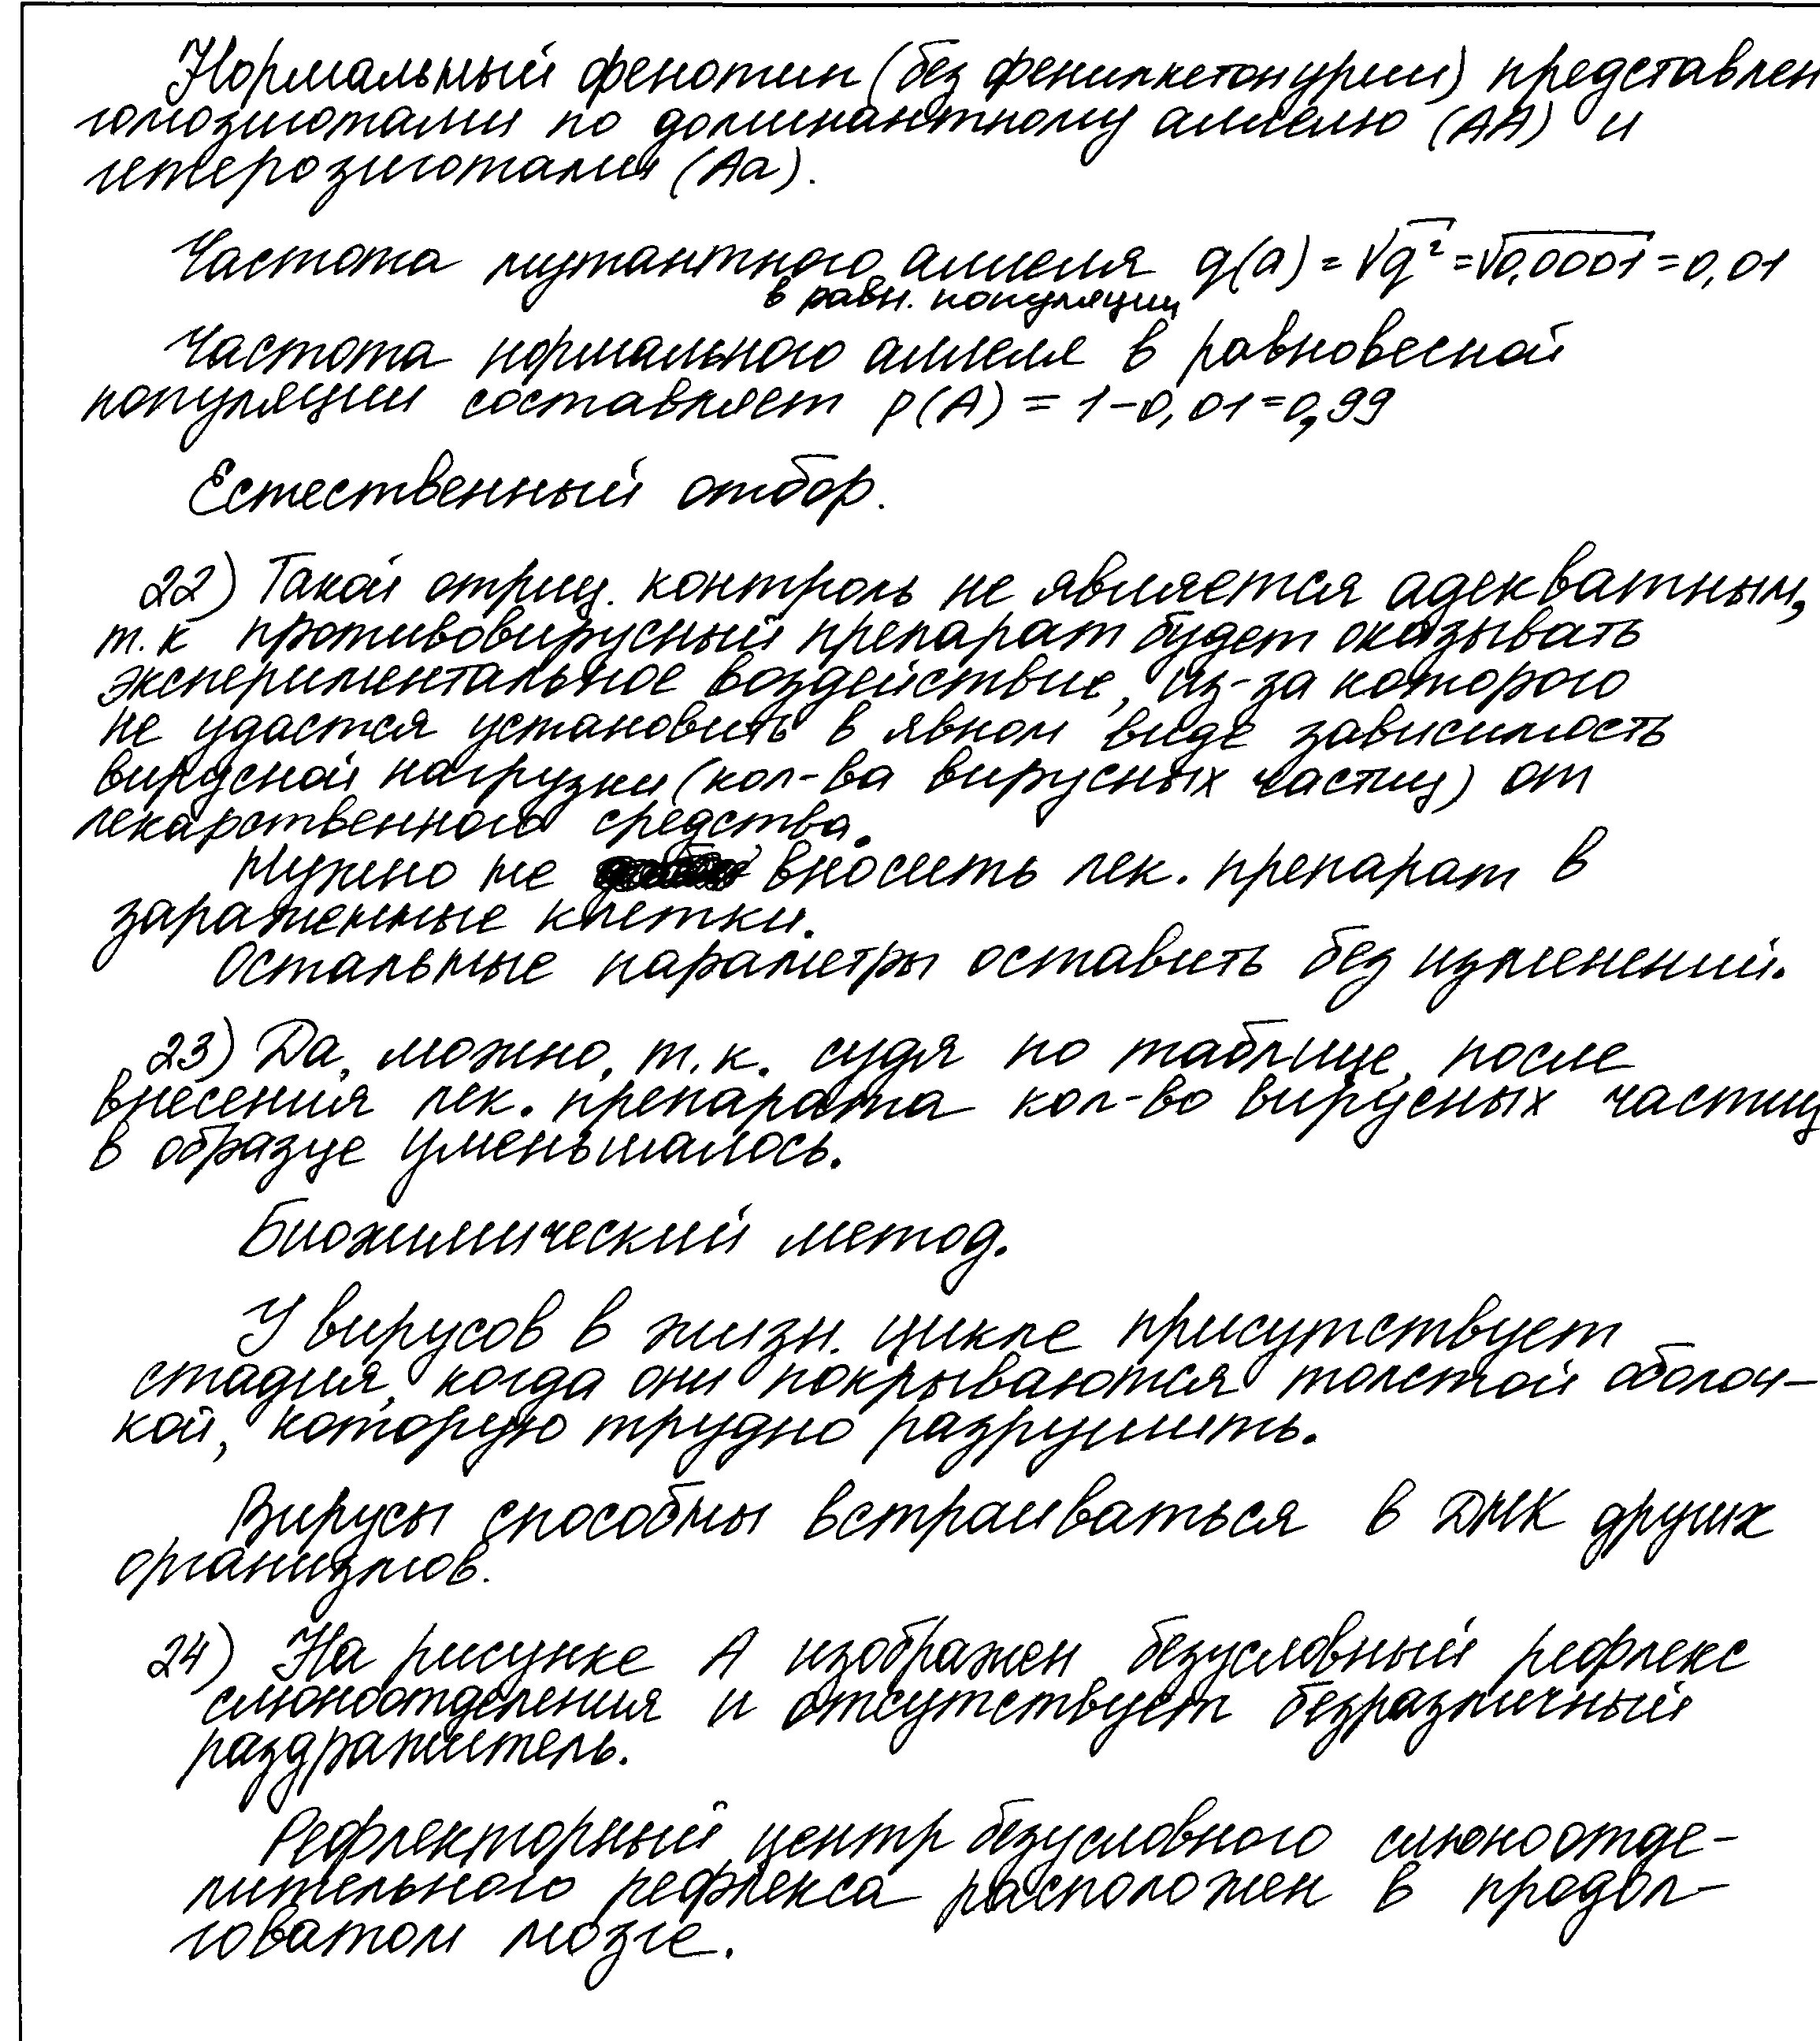 Нормальный фенотип (без фенилкетонурии) представлен
гомозиготами по доминантному аллелю (АА) и
гетерозиготами (Аа).
Частота мутантного аллеля q(a) = √q² = √0,0001 = 0,01
в равн. популяции
Частота нормального аллеля в равновесной
популяции составляет p(A) = 1-0,01=0,99
Естественный отбор.
22) Такой отриц. контроль не является адекватным,
т.к противовирусный препарат будет оказывать
экспериментальное воздействие, из-за которого
не удастся установить в явном виде зависимость
вирусной нагрузки (кол-ва вирусных частиц) от
лекарственного средства.
Нужно не вносить лек. препарат в
зараженные клетки.
Остальные параметры оставить без изменений.
23) Да, можно, т.к. судя по таблице, после
внесения лек. препарата кол-во вирусных частиц
в образце уменьшалось.
Биохимический метод.
У вирусов в жизн. цикле присутствует
стадия, когда они покрываются толстой оболоч-
кой, которую трудно разрушить.
Вирусы способны встраиваться в ДНК других
организмов.
24) На рисунке А изображен безусловный рефлекс
слюноотделения и отсутствует безразличный
раздражитель.
Рефлекторный центр безусловного слюноотде-
лительного рефлекса расположен в продол-
говатом мозге.